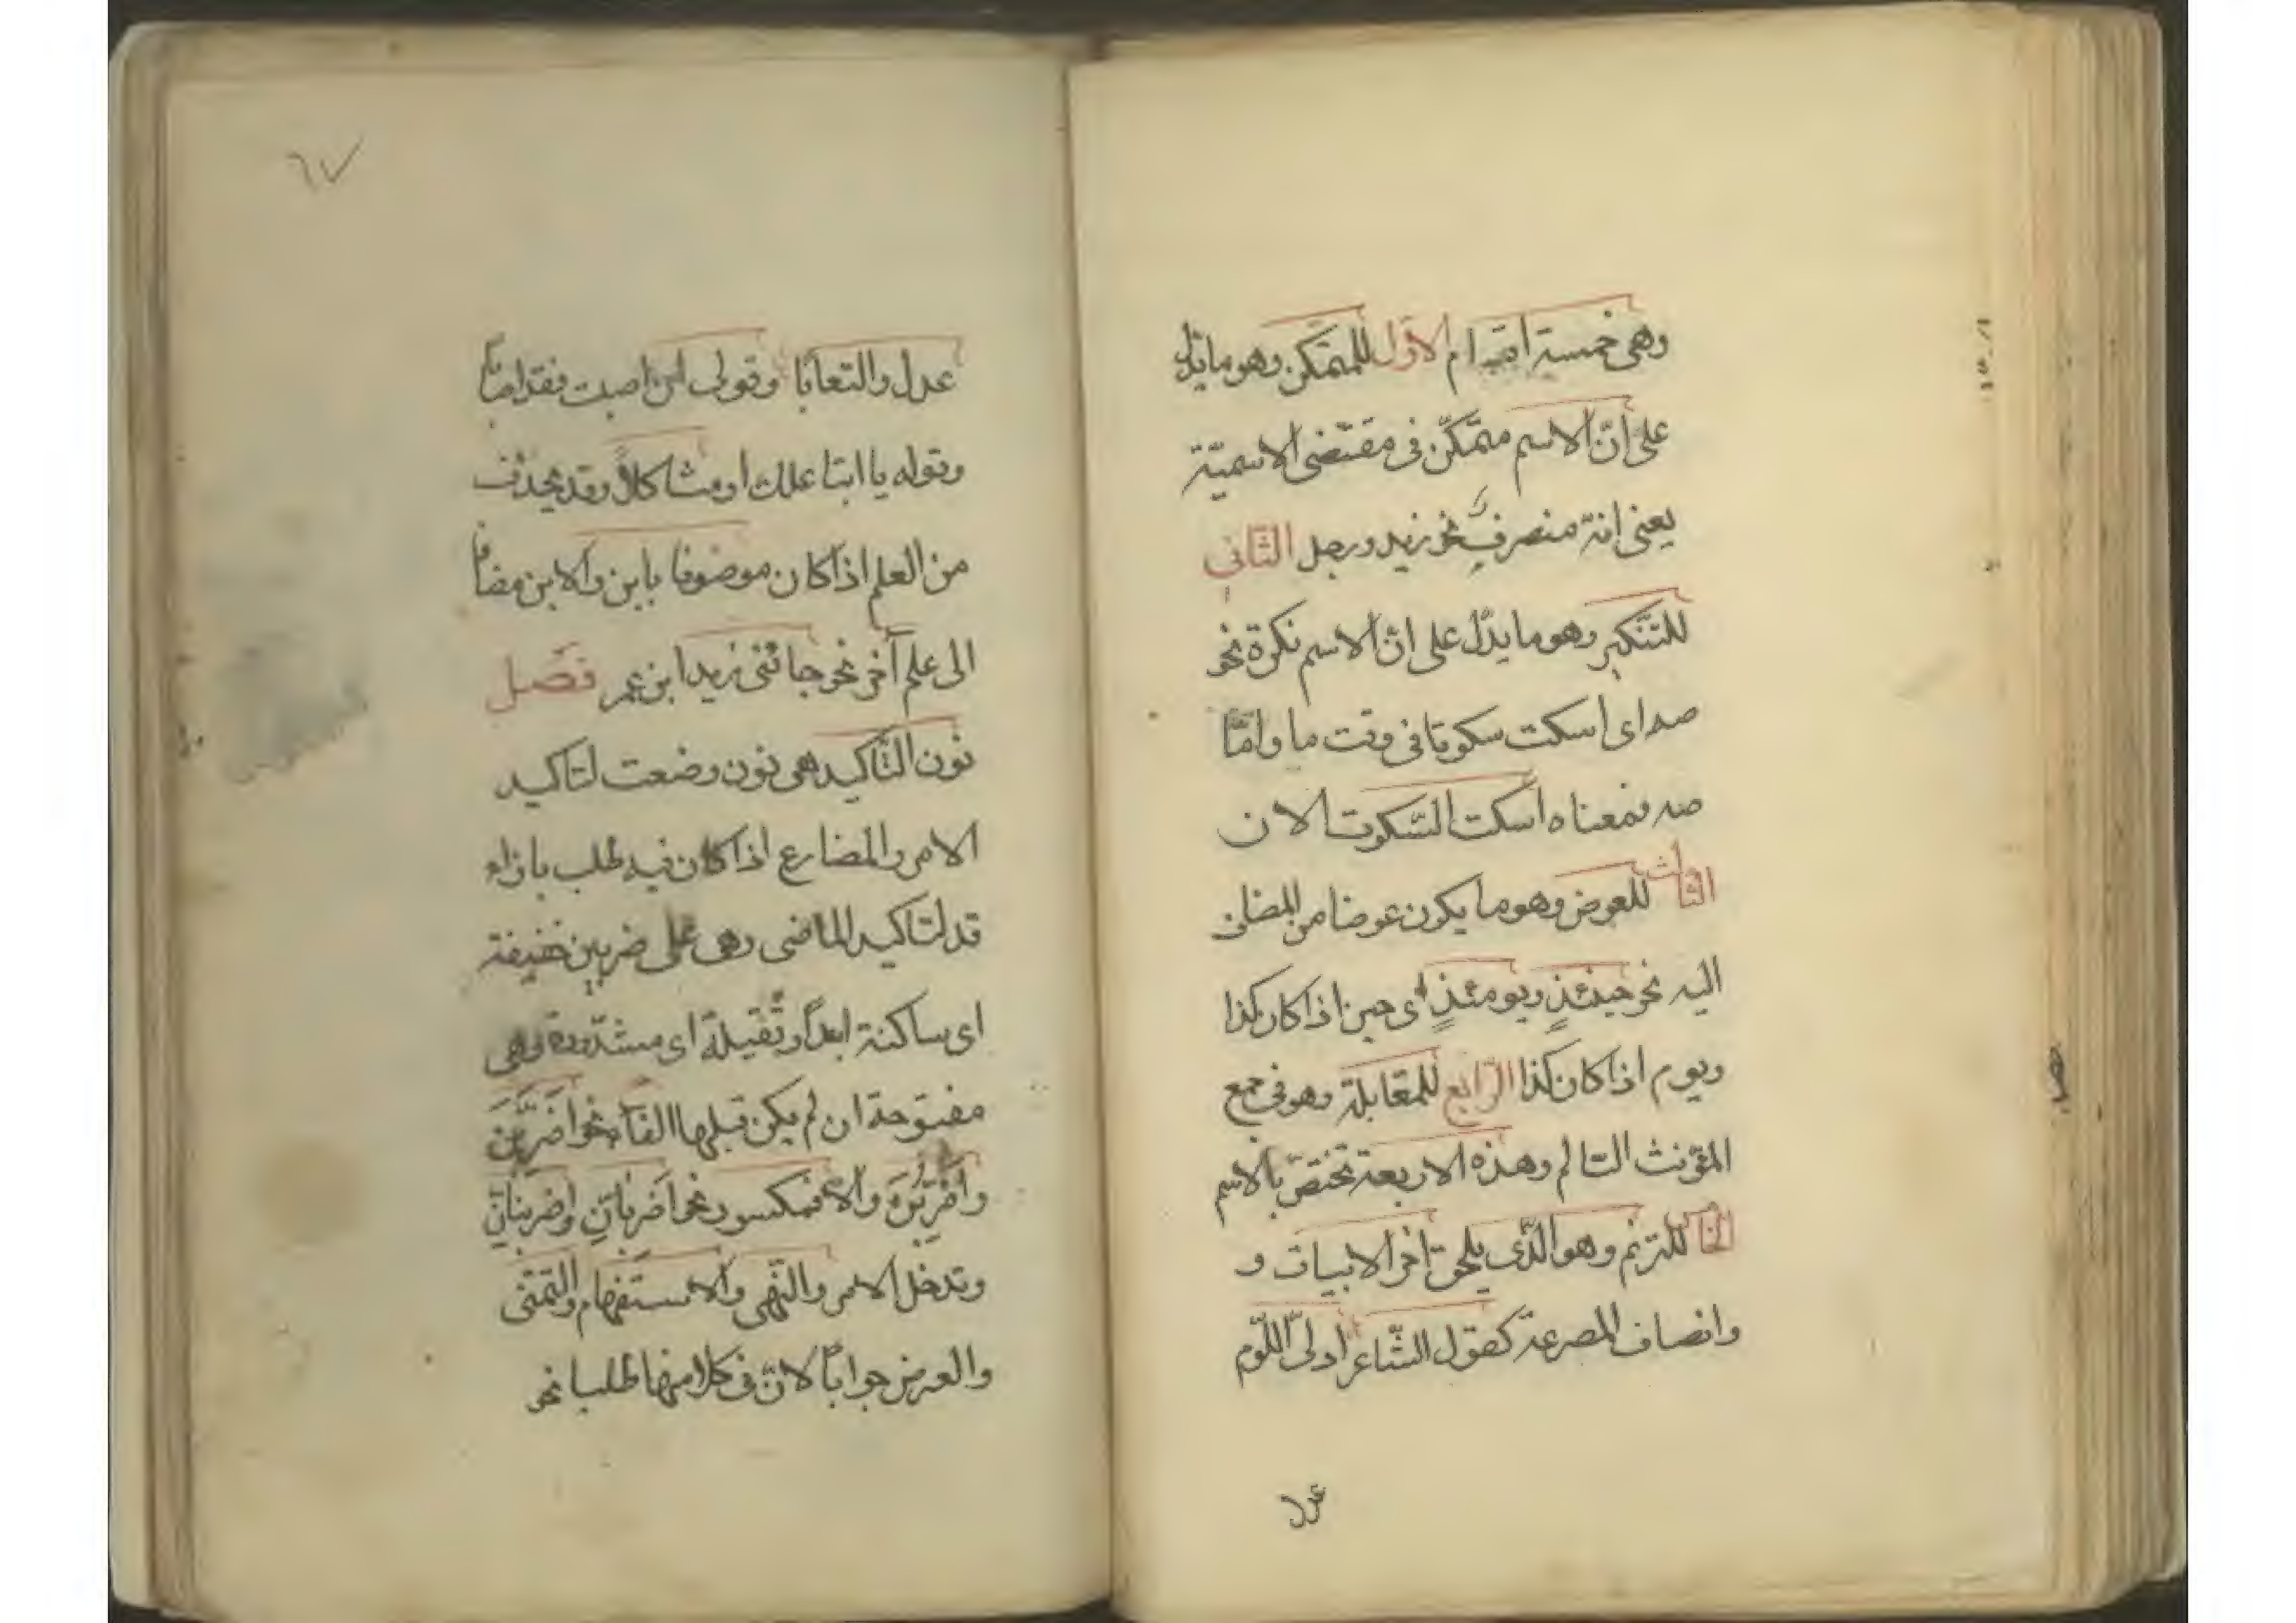 وهى خمسة اقسام الاوّل للمتمكّن وهو ما يدلّ
على انّ الاسم متمكّن فى مقتضى الاسميّة
يعنى انّه منصرف نحو زيد ورجل الثّانى
للتّنكير وهو ما يدلّ على انّ الاسم نكرة نحو
صه اى اسكت سكوتا فى وقت ما وامّا
صه فمعناه اسكت السّكوت الان
الثالث للعوض وهو ما يكون عوضا من المضاف
اليه نحو حينئذٍ ويومئذٍ اى حين اذا كان كذا
ويوم اذا كان كذا الرّابع للمقابلة وهو فى جمع
المؤنث السالم وهذه الاربعة تختصّ بالاسم
للترنم وهو الّذى يلحق آخر الابيات و
وانصاف المصرعة كقول الشّاعر اقلى اللّوم
عدل
٦٧
عدل والتعابا وقولى لئن اصبت فقد اصابا
وقوله يا ابتا علك او عساكا وقد يحذف
من العلم اذا كان موصوفا بابن والابن مضافا
الى علم آخر نحو جائنى زيد ابن عمر فصل
نون التّاكيد هى نون وضعت لتاكيد
الامر والمضارع اذا كان فيه طلب بازاء
قد لتاكيد الماضى وهى على ضربين خفيفة
اى ساكنة ابداً وثقيلة اى مشدّدة وهى
مفتوحة ان لم يكن قبلها الفاً نحو اضربَنَّ
واضربُنَّ والا فمكسورة نحو اضربانّ واضربنانّ
وتدخل الامر والنّهى والاستفهام والتّمنّى
والعرض جواباً لانّ فى كلا منها طلبا نحو